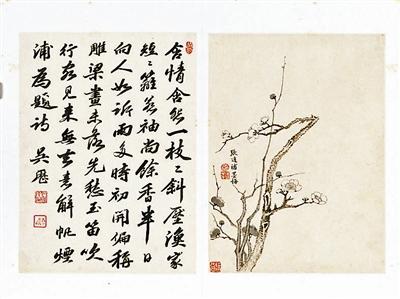 含情含怨一枝〻斜壓漁家
短〻籬惹袖尚餘香半日
向人如訴雨多時初開偏稱
雕梁畫未落先愁玉笛吹
行客見來無去意解帆煙
浦為題詩 吳歷